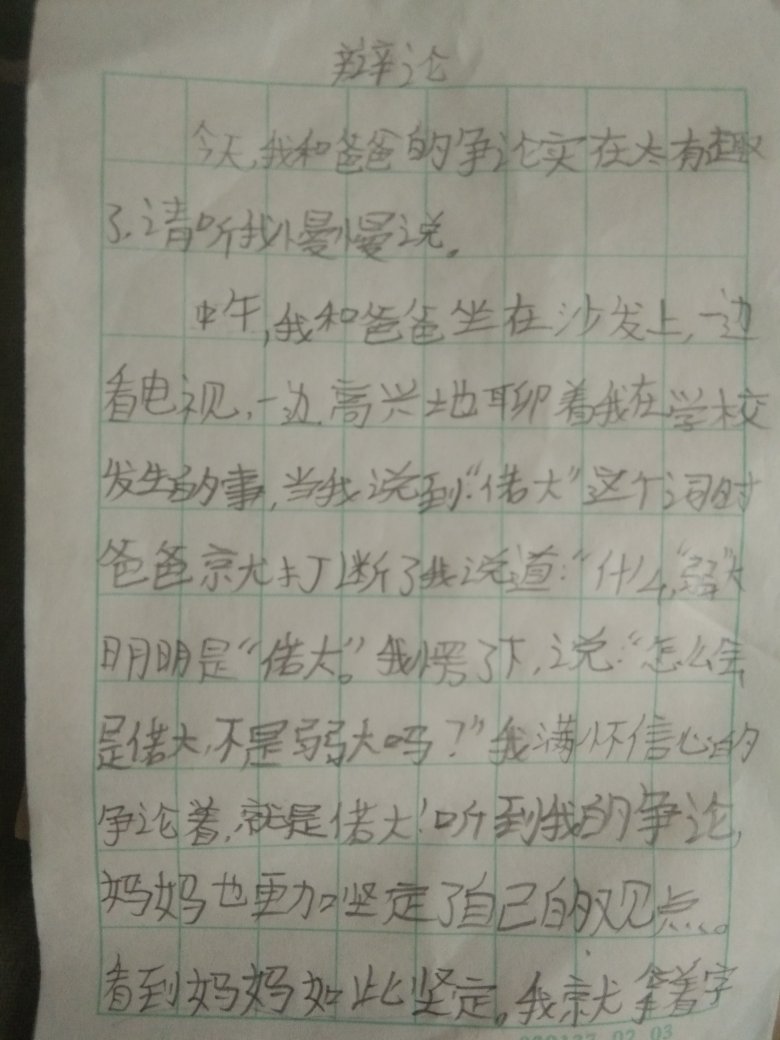 辩论
今天,我和爸爸的争论实在太有趣
了.请听我慢慢说。
中午,我和爸爸坐在沙发上,一边
看电视,一边高兴地聊着我在学校
发生的事,当我说到“偌大”这个词时
爸爸就打断了我说道:“什么,“弱”大
明明是“偌大”。我愣了下,说:“怎么会
是偌大,不是弱大吗?”我满怀信心的
争论着,就是偌大!听到我的争论,
妈妈也更加坚定了自己的观点。
看到妈妈如此坚定。我就拿着字